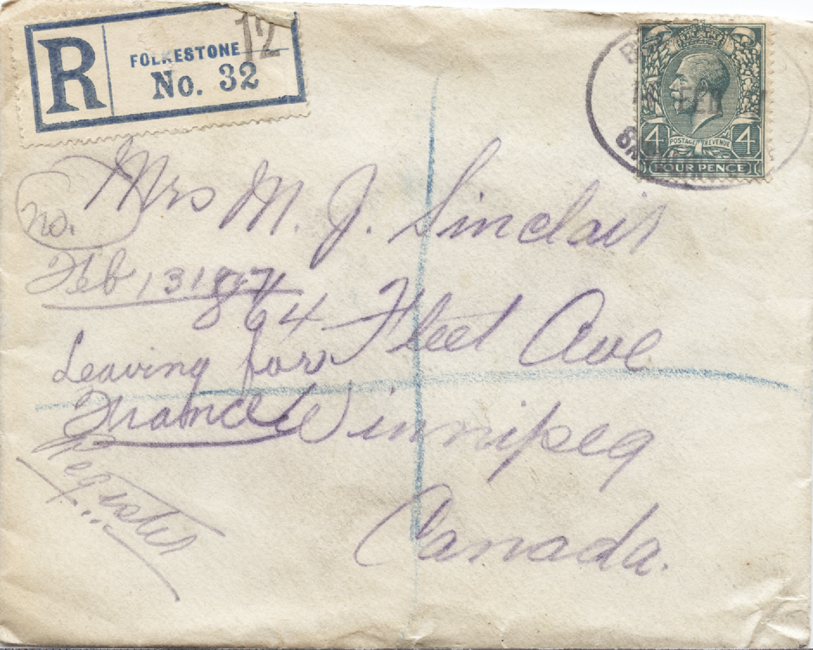 R
FOLKESTONE
No. 32
12
POSTAGE REVENUE
4 4
FOUR PENCE
Mrs M. J. Sinclair
no.
Feb 13
864 Fleet Ave
Leaving for
France
Winnipeg
Register
Canada.